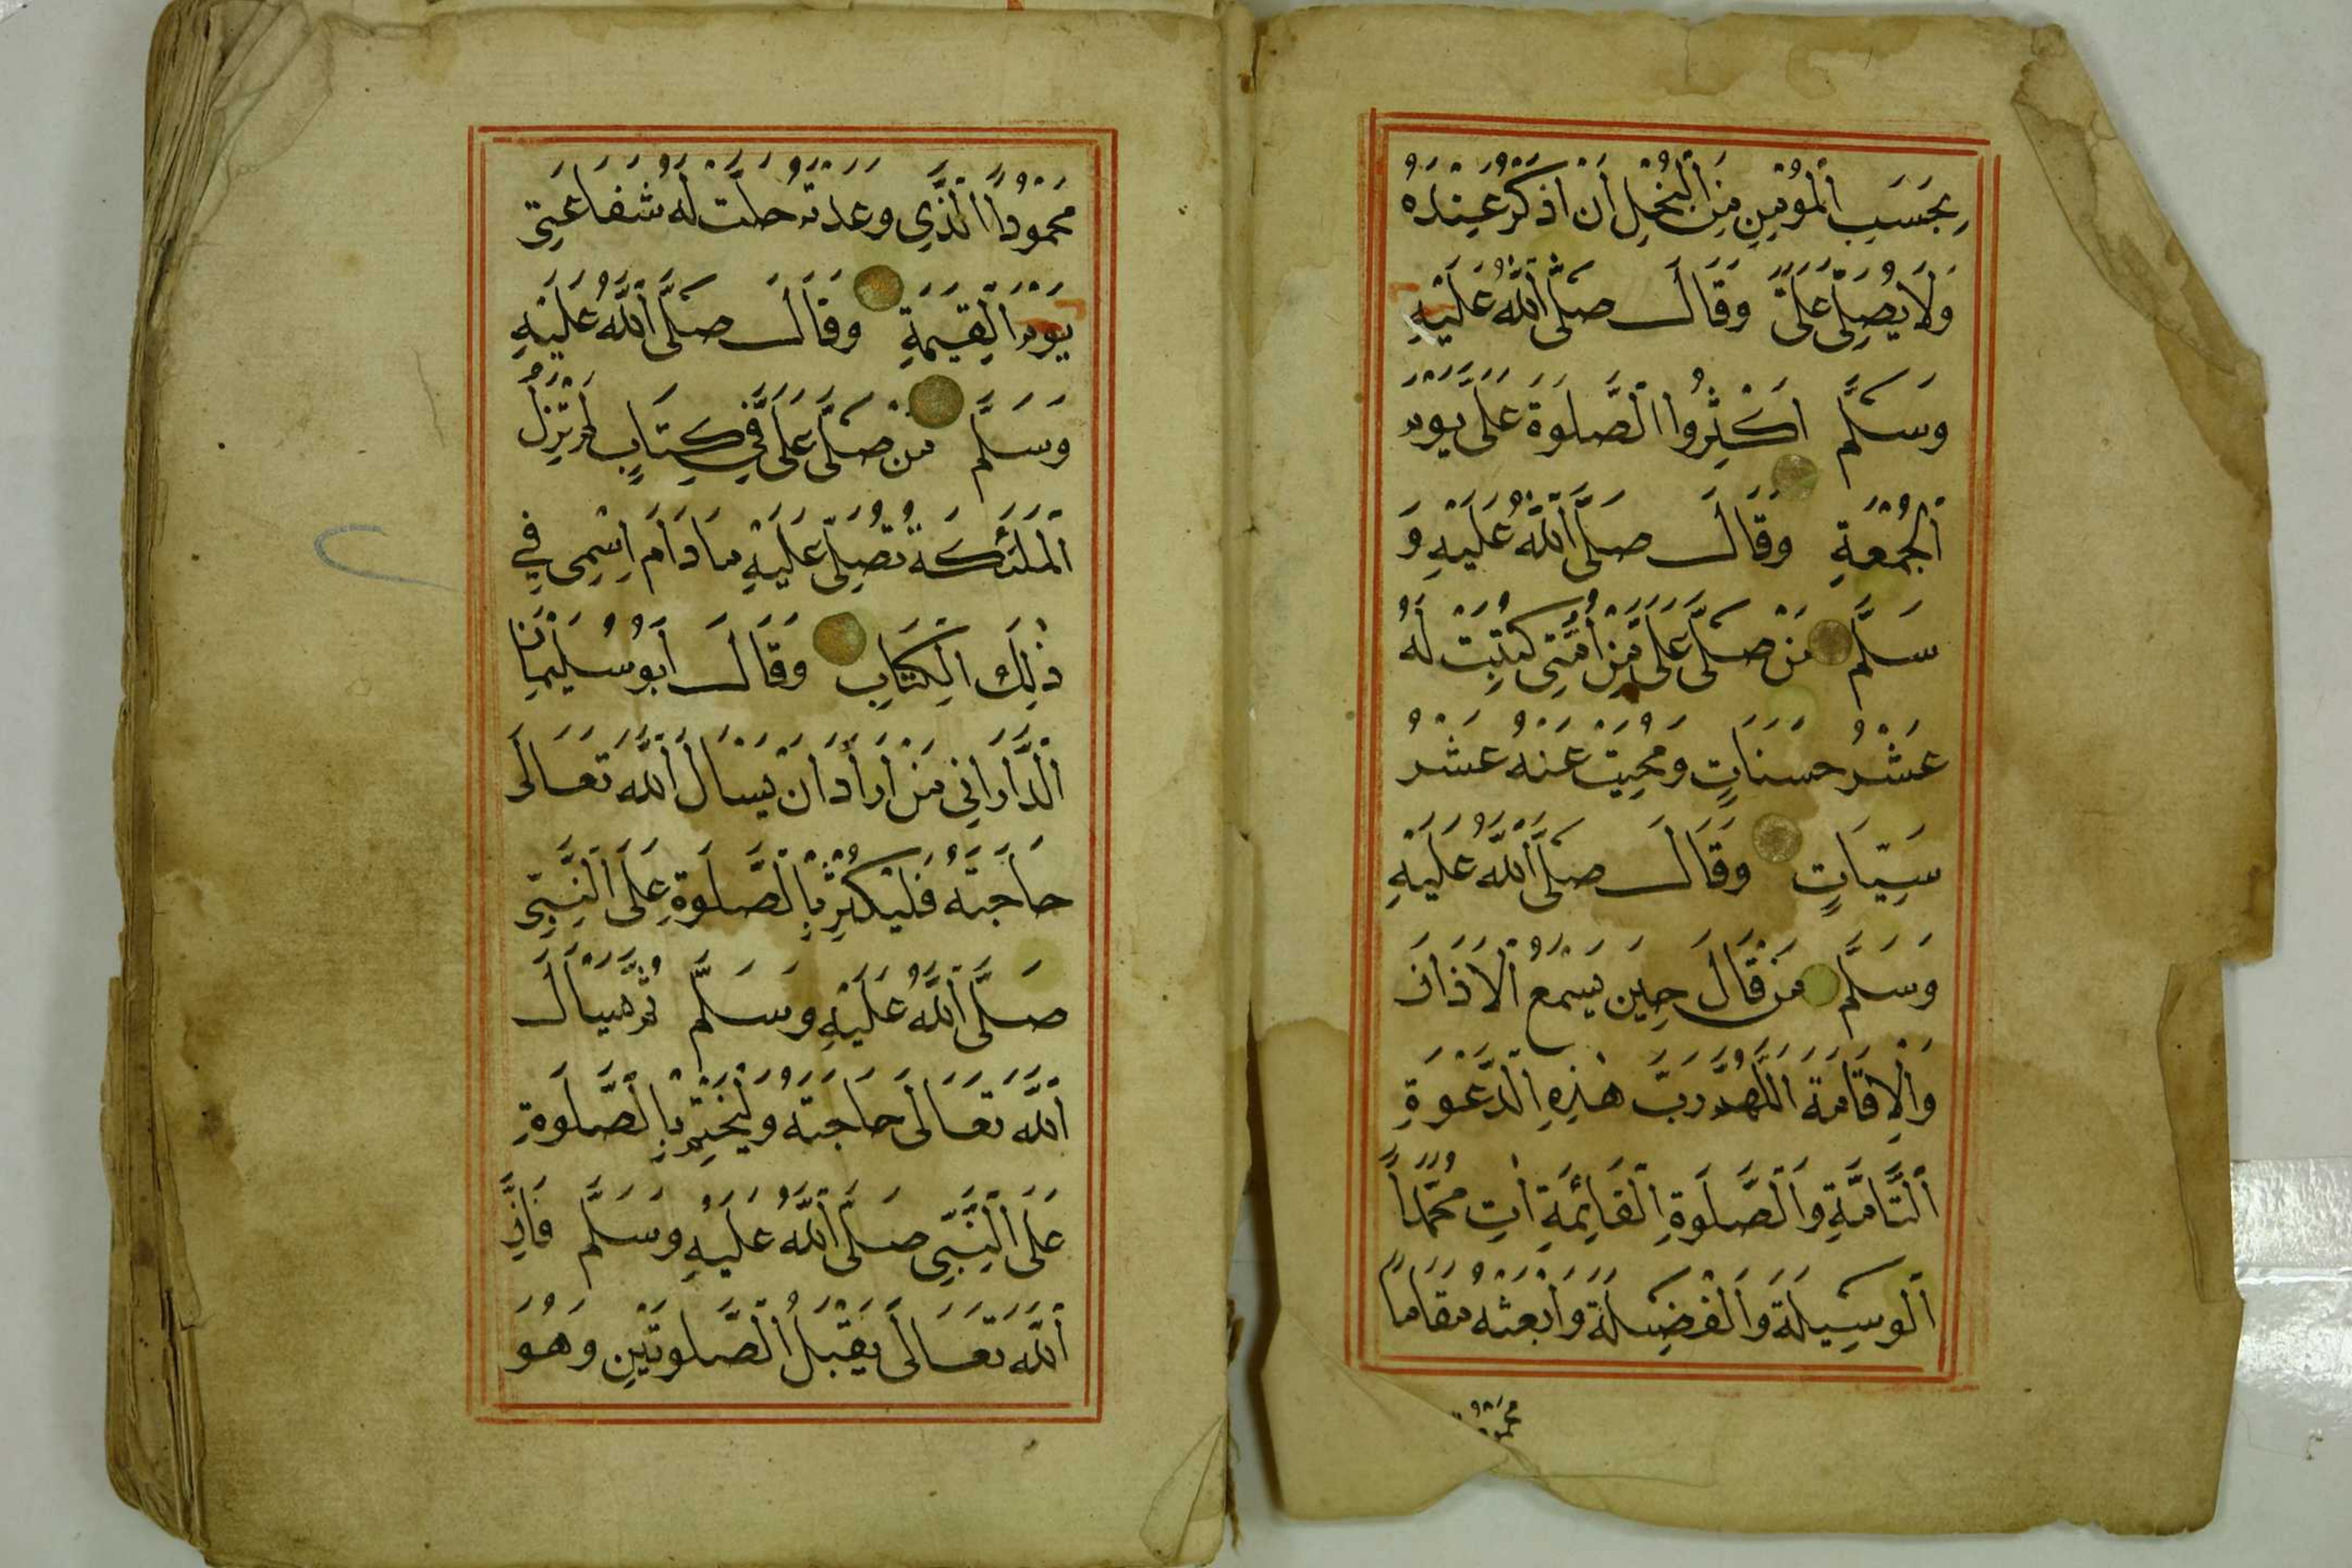 بِحَسَبِ الْمُؤْمِنِ مِنَ الْبُخْلِ أَنْ أُذْكَرَ عِنْدَهُ
وَلَا يُصَلِّي عَلَيَّ وَقَالَ صَلَّى اللَّهُ عَلَيْهِ
وَسَلَّمَ أَكْثِرُوا الصَّلَوةَ عَلَيَّ يَوْمَ
الْجُمُعَةِ وَقَالَ صَلَّى اللَّهُ عَلَيْهِ وَ
سَلَّمَ مَنْ صَلَّى عَلَيَّ مِنْ أُمَّتِي كُتِبَتْ لَهُ
عَشْرُ حَسَنَاتٍ وَمُحِيَتْ عَنْهُ عَشْرُ
سَيِّاتٍ وَقَالَ صَلَّى اللَّهُ عَلَيْهِ
وَسَلَّمَ مَنْ قَالَ حِينَ يَسْمَعُ الْاَذَانَ
وَالْاِقَامَةَ اللَّهُمَّ رَبَّ هٰذِهِ الدَّعْوَةِ
التَّامَّةِ وَالصَّلَوةِ الْقَائِمَةِ اٰتِ مُحَمَّدًا
الْوَسِيلَةَ وَالْفَضِيلَةَ وَابْعَثْهُ مَقَامًا
مَحْمُودًا
مَحْمُودًا الَّذِي وَعَدْتَهُ حَلَّتْ لَهُ شَفَاعَتِي
يَوْمَ الْقِيٰمَةِ وَقَالَ صَلَّى اللَّهُ عَلَيْهِ
وَسَلَّمَ مَنْ صَلَّى عَلَيَّ فِي كِتَابٍ لَمْ تَزَلْ
الْمَلٰئِكَةُ تُصَلِّي عَلَيْهِ مَا دَامَ اِسْمِي فِي
ذٰلِكَ الْكِتَابِ وَقَالَ أَبُو سُلَيْمَانَ
الدَّارَانِي مَنْ أَرَادَ أَنْ يَسْأَلَ اللَّهَ تَعَالَى
حَاجَتَهُ فَلْيُكْثِرْ بِالصَّلَوةِ عَلَى النَّبِيِّ
صَلَّى اللَّهُ عَلَيْهِ وَسَلَّمَ ثُمَّ يَسْأَلُ
اللَّهَ تَعَالَى حَاجَتَهُ وَلْيَخْتِمْ بِالصَّلَوةِ
عَلَى النَّبِيِّ صَلَّى اللَّهُ عَلَيْهِ وَسَلَّمَ فَاِنَّ
اللَّهَ تَعَالَى يَقْبَلُ الصَّلَوتَيْنِ وَهُوَ